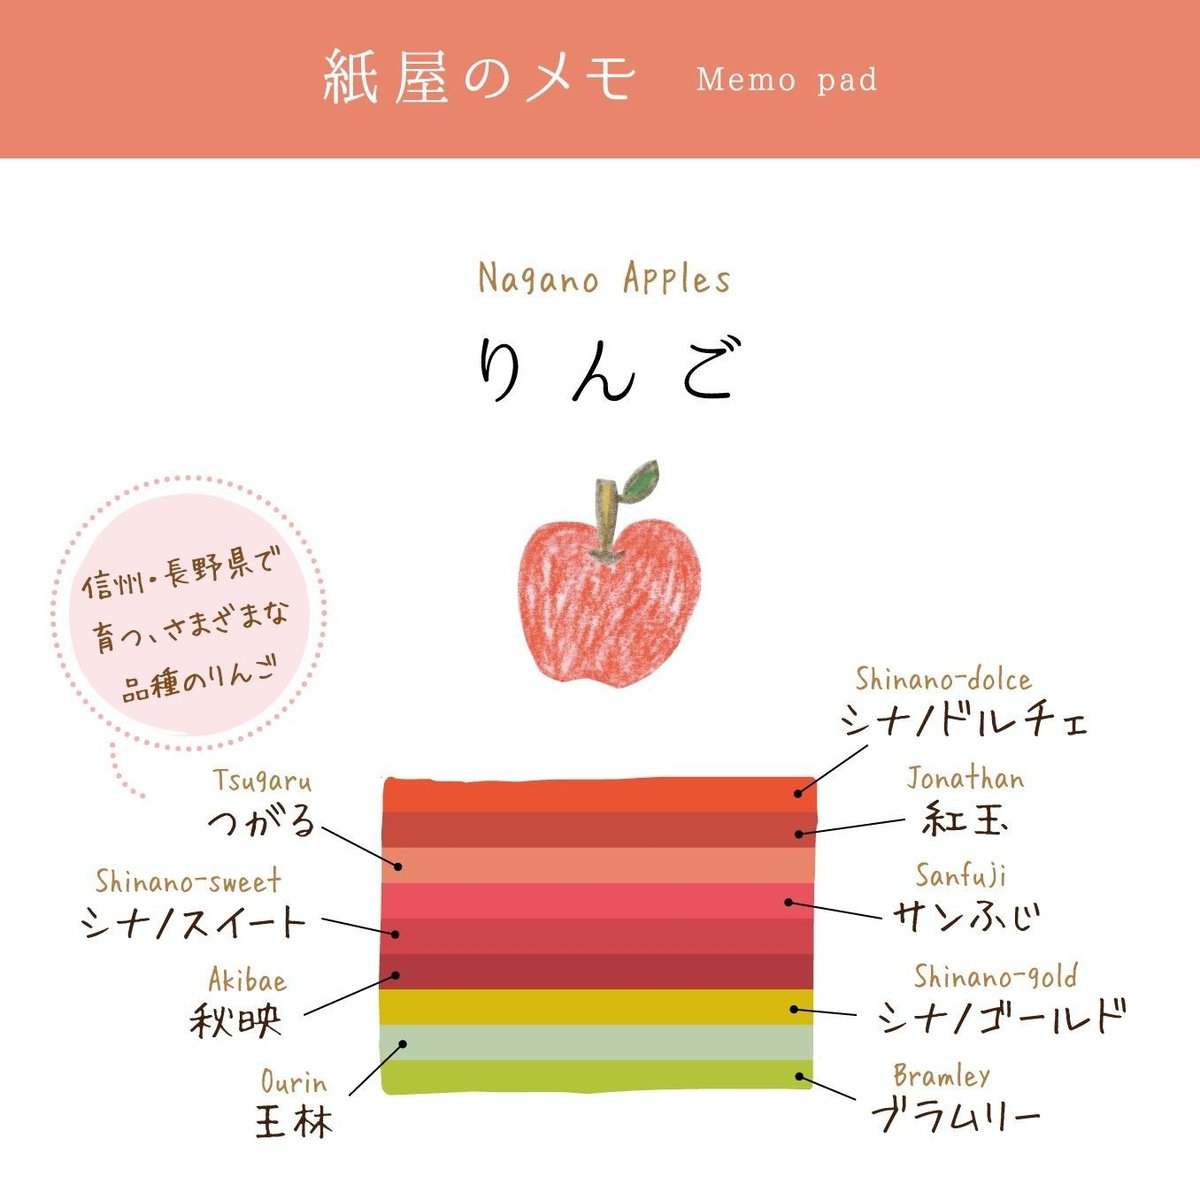 紙屋のメモ Memo pad
Nagano Apples
りんご
信州・長野県で
育つ、さまざまな
品種のりんご
Shinano-dolce
シナノドルチェ
Tsugaru
つがる
Jonathan
紅玉
Shinano-sweet
シナノスイート
Sanfuji
サンふじ
Akibae
秋映
Shinano-gold
シナノゴールド
Ourin
王林
Bramley
ブラムリー